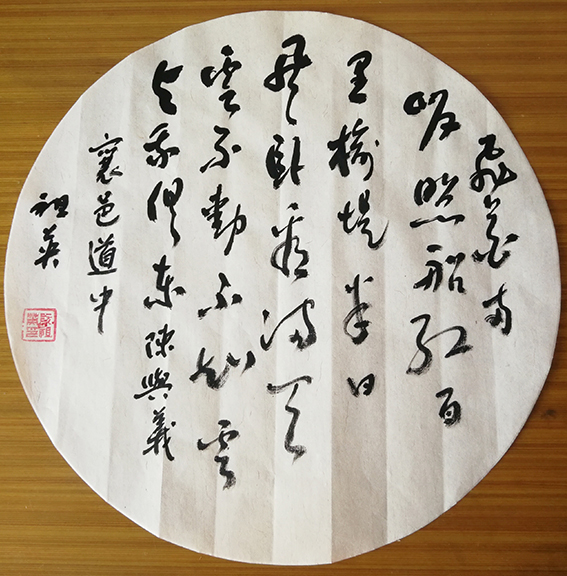 飛花兩
岸照船紅百
里榆堤半日
風臥看滿天
雲不動不知雲
與我俱東陳與義
襄邑道中
祖英